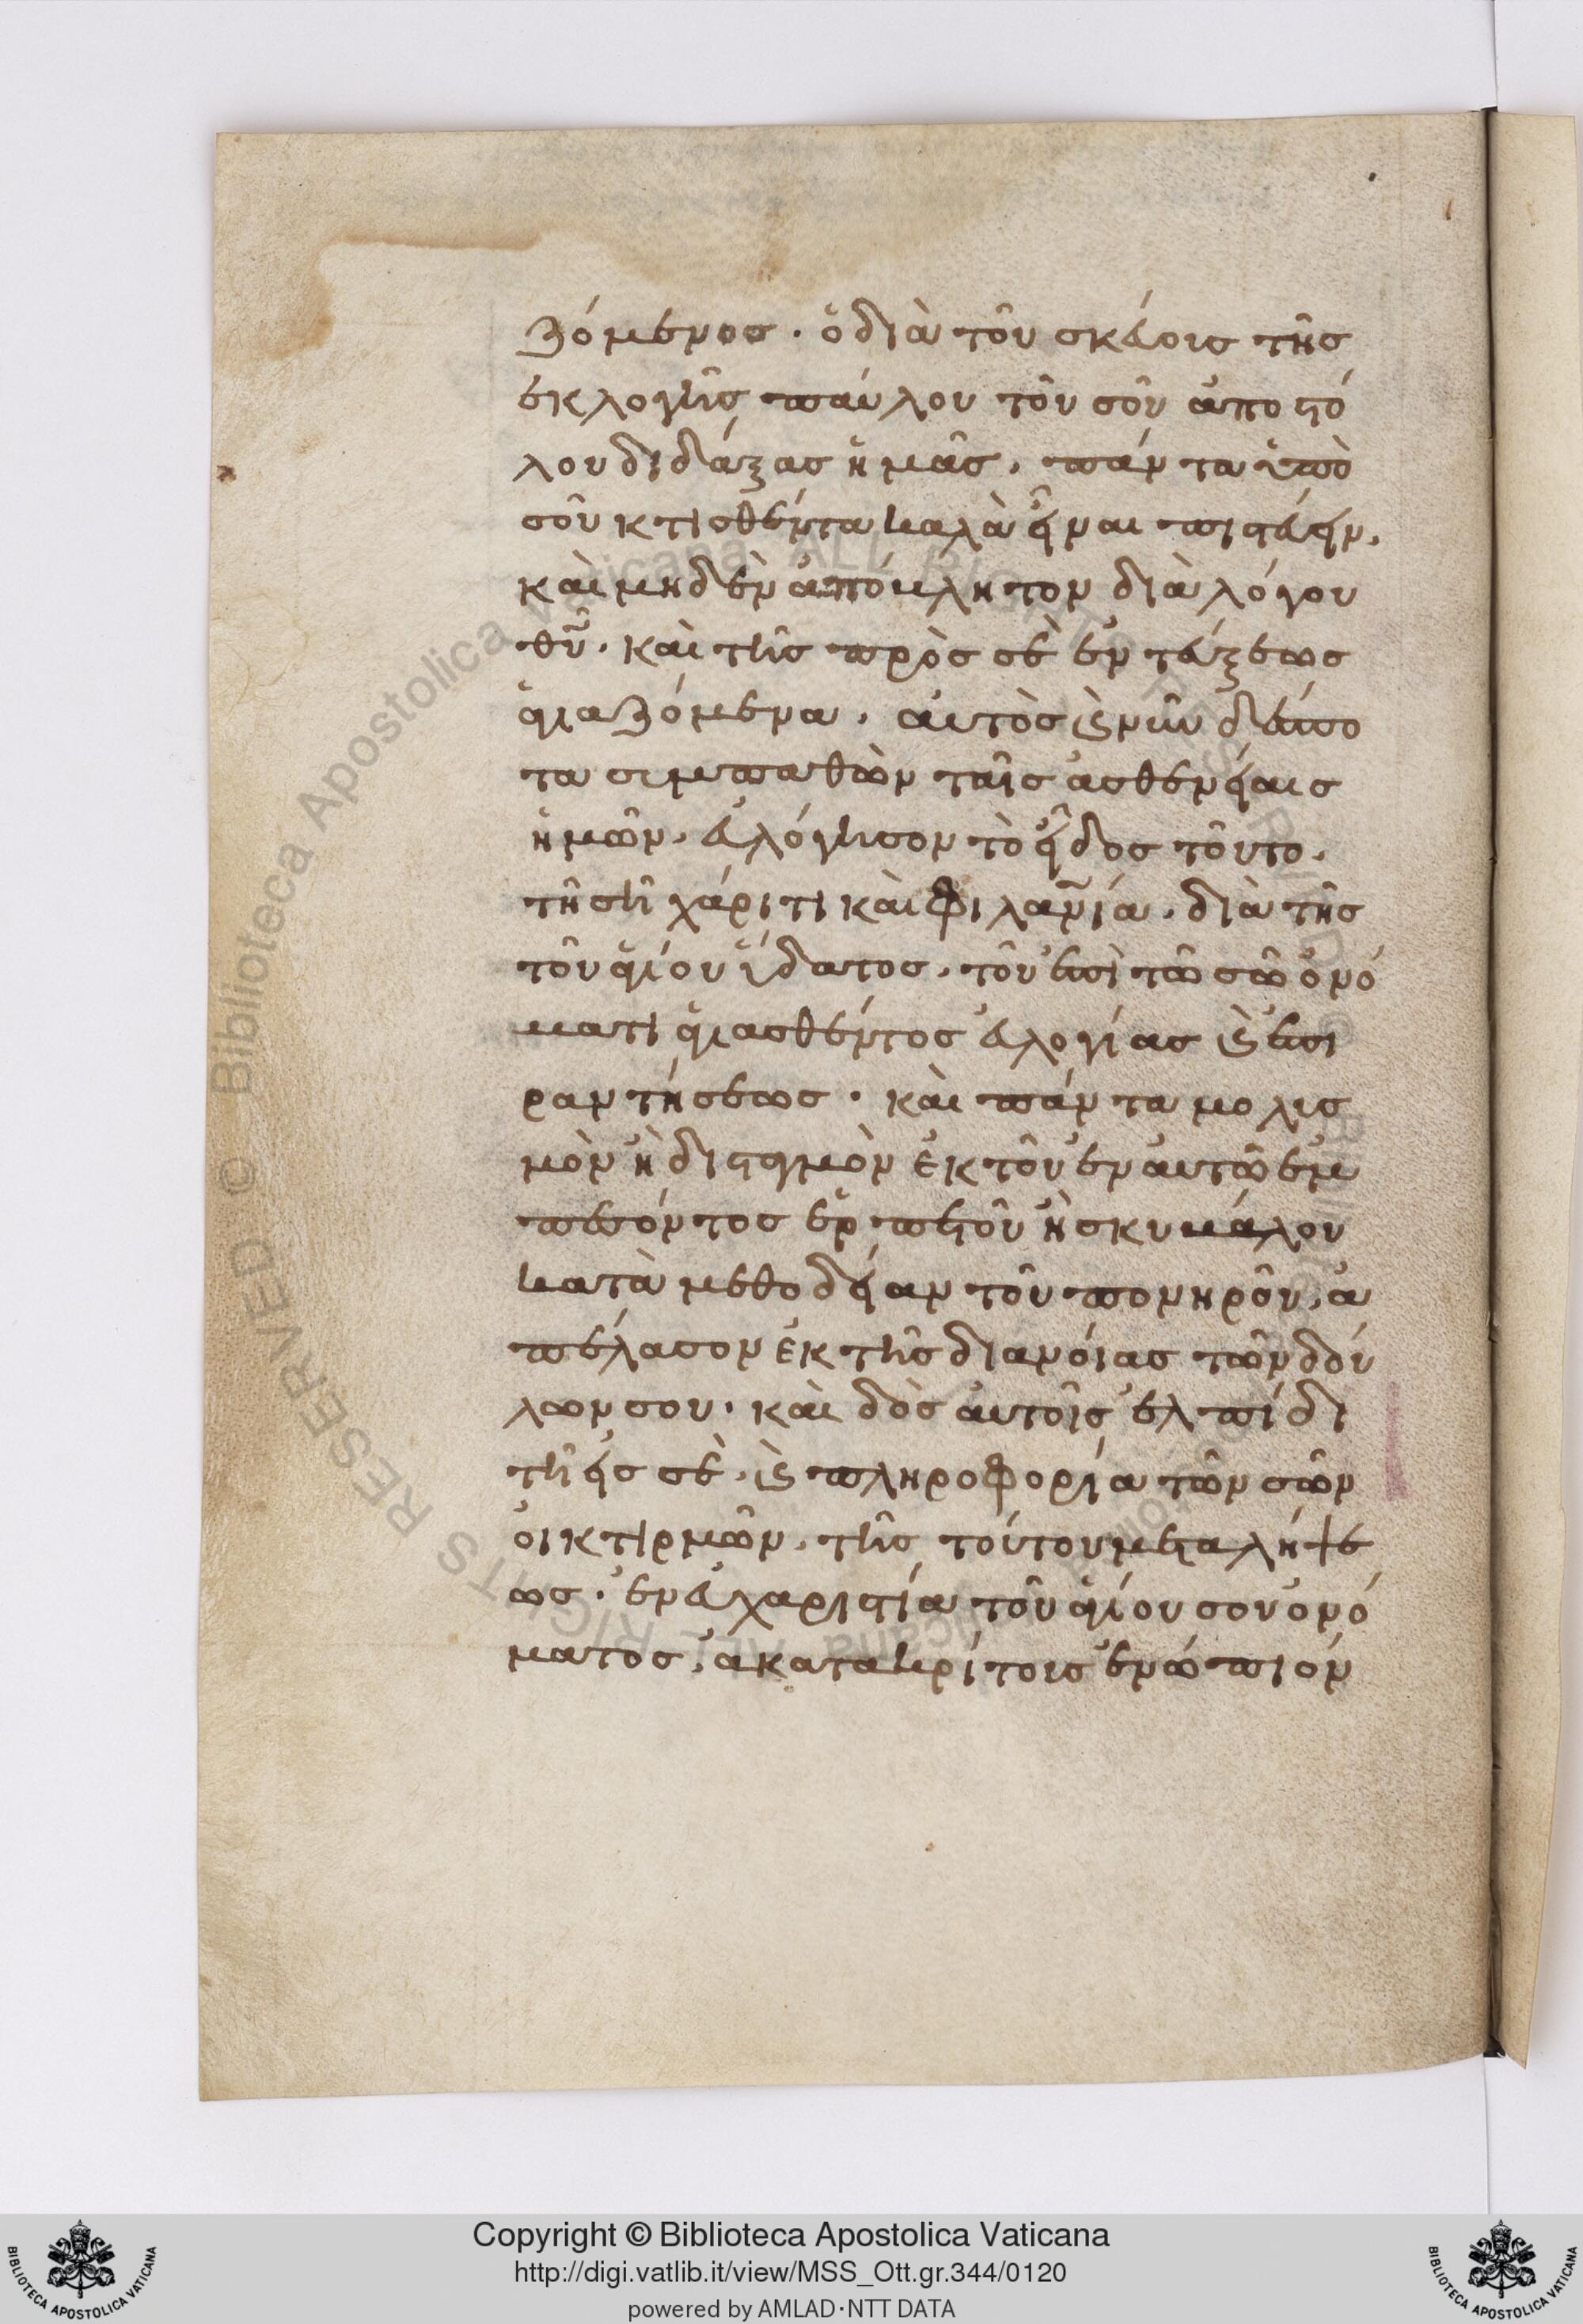 ζόμενος · ὁ διὰ τοῦ σκεύους τῆς
ἐκλογῆς παύλου τοῦ σοῦ ἀποστό
λου διδάξας ἡμᾶς, πάντα ὑπὸ
σοῦ κτισθέντα καλὰ εἶναι πιστεύειν,
καὶ μηδὲν ἀπόκλητον διὰ λόγου
θυ̅. καὶ τῆς πρὸς σὲ ἐντεύξεως
ἁγιαζόμενα, αὐτὸς καὶ νῦν δέσπο
τα συμπαθῶν ταῖς ἀσθενείαις
ἡμῶν, εὐλόγησον τὸ εἶδος τοῦτο,
τῆ σῆ χάριτι καὶ φιλανια̅, διὰ τῆς
τοῦ ἁγίου ὕδατος, τοῦ ἐπὶ τῶ σῶ ὀνό
ματι ἁγιασθέντος εὐλογίας καὶ ἐπι
ραντήσεως · καὶ πάντα μολις
μὸν ἢ δισταγμὸν ἐκ τοῦ ἐν αὐτῶ ἐμ
πεσόντος ἑρπετοῦ ἢ σκυμάλου
κατὰ μεθοδείαν τοῦ πονηροῦ, ἀ
πέλασον ἐκ τῆς διανοίας τῶν δού
λων σου · καὶ δὸς αὐτοῖς ἐλπίδι
τῆ εἰς σὲ, καὶ πληροφορία τῶν σῶν
οἰκτιρμῶν, τῆς τούτου μεταλήψε
ως · ἐν εὐχαριστία τοῦ ἁγίου σου ὀνό
ματος, ἀκατακρίτοις ἐνώπιόν
© Biblioteca Apostolica Vaticana ALL RIGHTS RESERVED
Copyright © Biblioteca Apostolica Vaticana
http://digi.vatlib.it/view/MSS_Ott.gr.344/0120
powered by AMLAD·NTT DATA
BIBLIOTECA APOSTOLICA VATICANA
BIBLIOTECA APOSTOLICA VATICANA